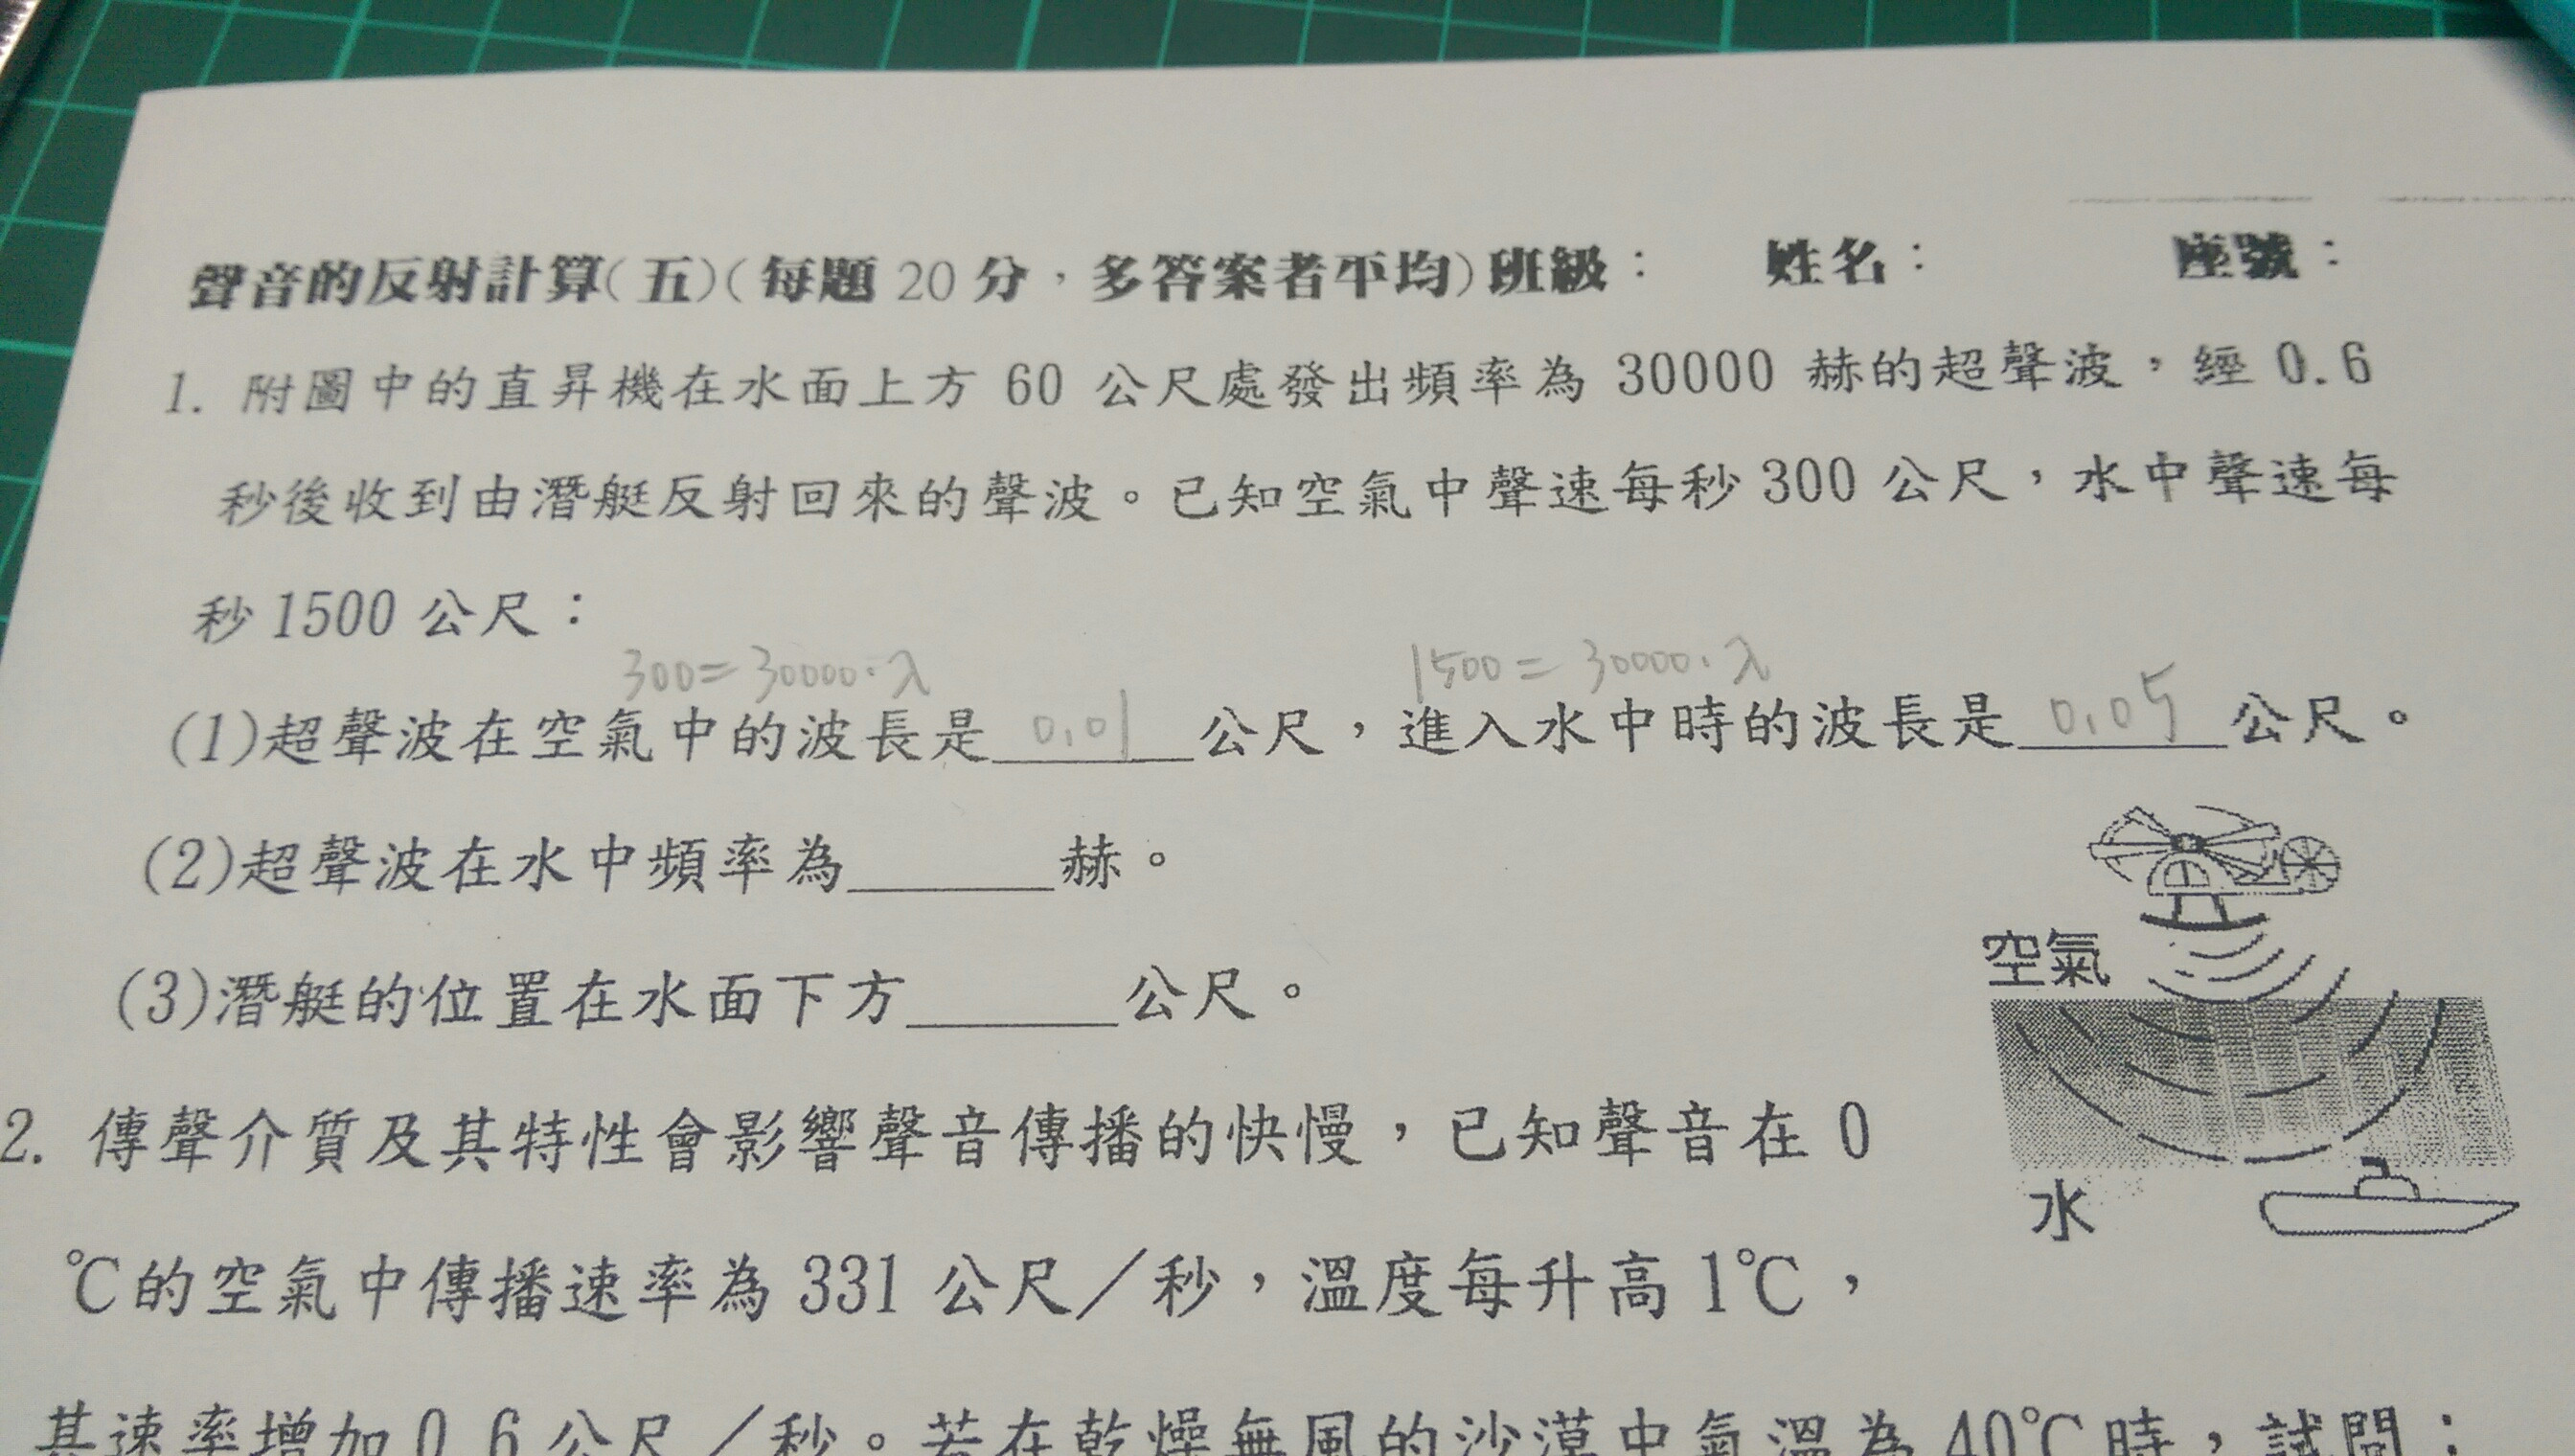 聲音的反射計算(五)(每題20分，多答案者平均)班級：　姓名：　座號：
1. 附圖中的直昇機在水面上方 60 公尺處發出頻率為 30000 赫的超聲波，經 0.6
秒後收到由潛艇反射回來的聲波。已知空氣中聲速每秒 300 公尺，水中聲速每
秒 1500 公尺：
300=30000·λ　1500=30000·λ
(1)超聲波在空氣中的波長是 0.01 公尺，進入水中時的波長是 0.05 公尺。
(2)超聲波在水中頻率為______赫。
(3)潛艇的位置在水面下方______公尺。
空氣
水
2. 傳聲介質及其特性會影響聲音傳播的快慢，已知聲音在 0
℃的空氣中傳播速率為 331 公尺／秒，溫度每升高 1℃，
其速率增加 0.6 公尺／秒。若在乾燥無風的沙漠中氣溫為 40℃時，試問：